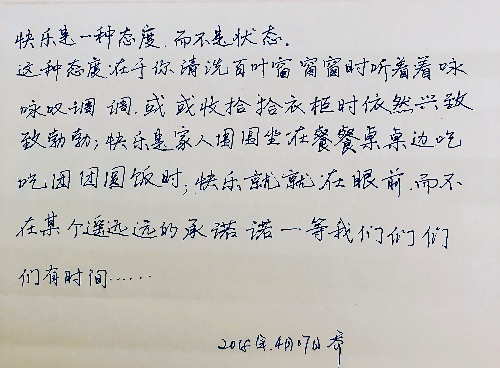 快乐是一种态度,而不是状态.
这种态度在于你清洗百叶窗窗窗时听着着咏
咏叹调调,或或收拾拾衣柜时依然兴致
致勃勃;快乐是家人围围坐在餐餐桌桌边吃
吃团团圆饭时;快乐就就在眼前,而不
在某个遥远远的承诺诺一等我们们们
们有时间……
2018年.4月07日